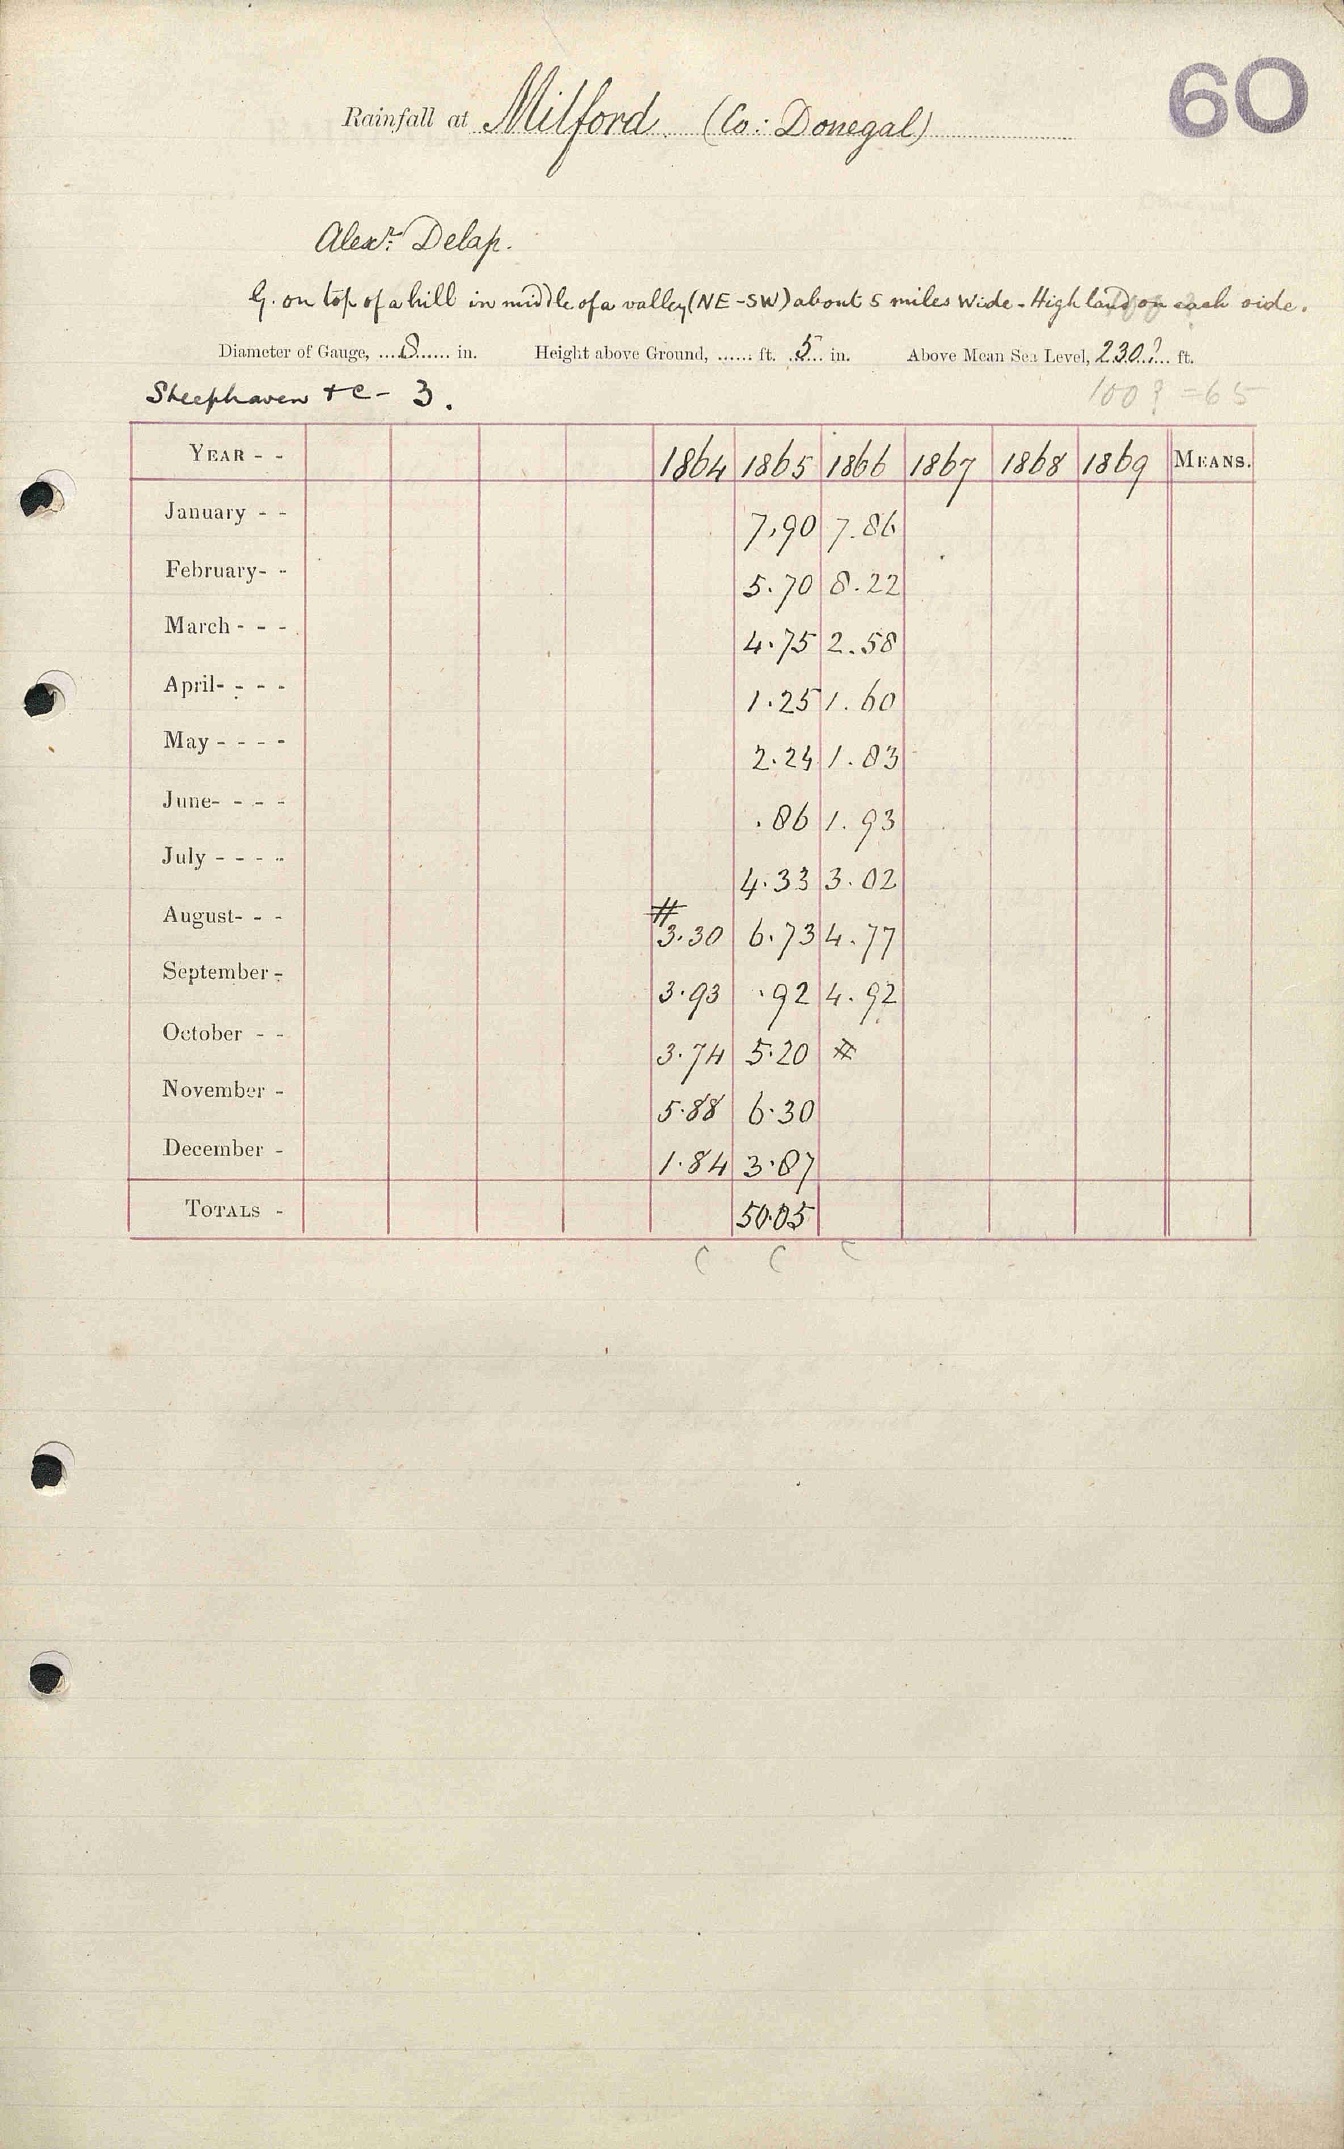 60
Rainfall at Milford (Co: Donegal)
Alexr. Delap.
G. on top of a hill in middle of a valley (NE-SW) about 5 miles wide - High land on each side.
Diameter of Gauge, ....8...... in. Height above Ground, ...... ft. 5 in. Above Mean Sea Level, 230? ft.
Sheephaven &c - 3.
100? = 65
YEAR - - 1864 1865 1866 1867 1868 1869 MEANS.
January - - 7.90 7.86
February- - 5.70 8.22
March - - - 4.75 2.58
April- - - - 1.25 1.60
May - - - - 2.24 1.83
June- - - - .86 1.93
July - - - - 4.33 3.02
August- - - # 3.30 6.73 4.77
September - 3.93 .92 4.92
October - - 3.74 5.20 #
November - 5.88 6.30
December - 1.84 3.87
TOTALS - 50.05
( ( (